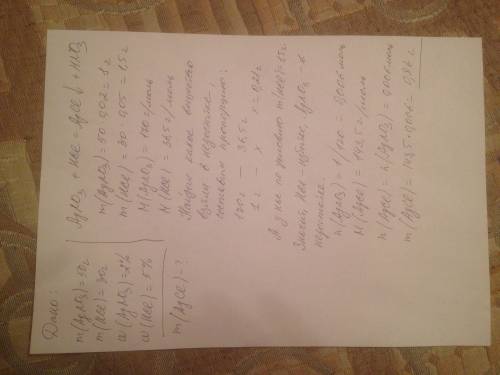 Дано:
m(AgNO₃)=50г
m(HCl)=30г
ω(AgNO₃)=2%
ω(HCl)=5%
m(AgCl)-?
AgNO₃ + HCl = AgCl↓ + HNO₃
m(AgNO₃)=50·0.02=1г
m(HCl)=30·0.05=1.5г
M(AgNO₃)=170г/моль
M(HCl)=36.5г/моль
Найдем какое вещество
взято в недостатке,
составим пропорцию:
170г — 36,5г
1г — x x=0,21г
А у нас по условию m(HCl)=1.5г
Значит HCl-избыток, AgNO₃-в
недостатке.
n(AgNO₃)=1/170=0,006моль
M(AgCl)=143.5г/моль
n(AgCl)=n(AgNO₃)=0,006моль
m(AgCl)=143.5·0.006=0,86г